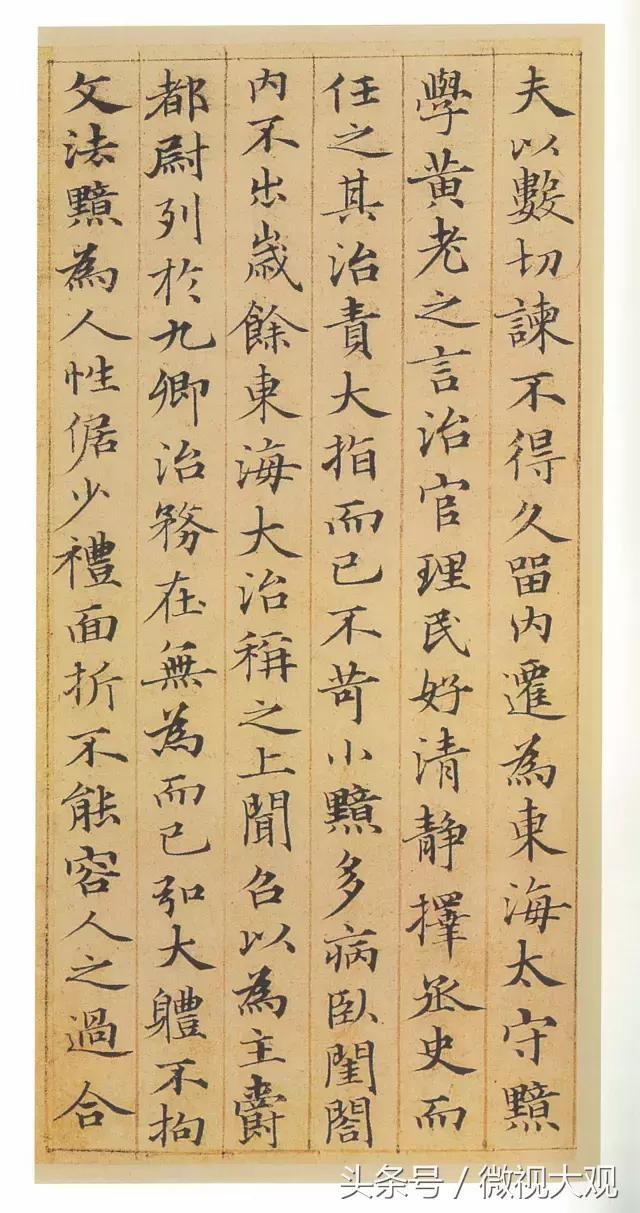 夫以數切諫不得久留内遷為東海太守黯
學黄老之言治官理民好清静擇丞史而
任之其治責大指而已不苛小黯多病卧閨閤
内不出歲餘東海大治稱之上聞召以為主爵
都尉列於九卿治務在無為而已弘大軆不拘
文法黯為人性倨少禮面折不能容人之過合
头条号 / 微视大观